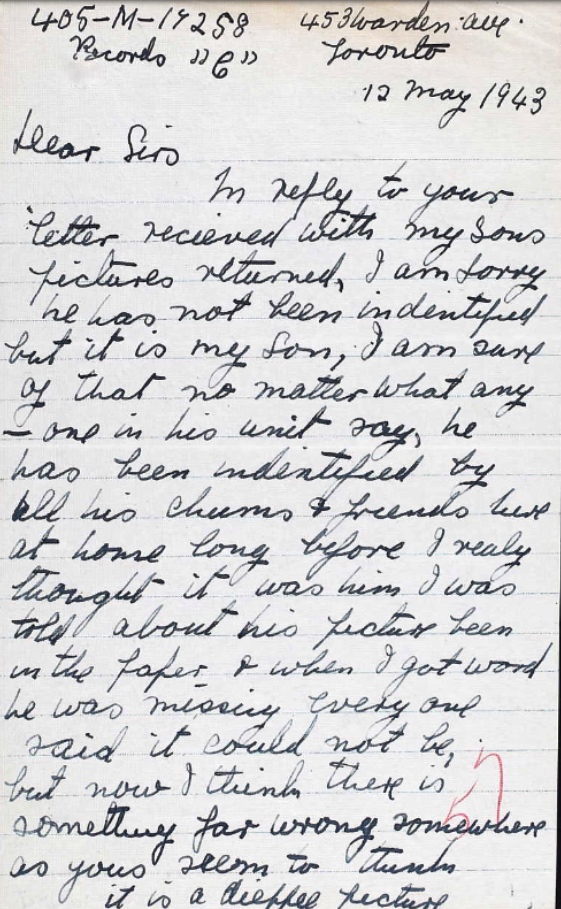 405-M-17258 453 Warden Ave.
Records "C" Toronto
12 May 1943
Dear Sirs
In reply to your
letter recieved with my sons
pictures returned, I am sorry
he has not been indentified
but it is my son, I am sure
of that no matter what any
- one in his unit say, he
has been indentified by
all his chums & friends here
at home long before I realy
thought it was him I was
told about his picture been
in the paper & when I got word
he was missing every one
said it could not be,
but now I think there is
something far wrong somewhere
as yous seem to think
it is a dieppe picture
57